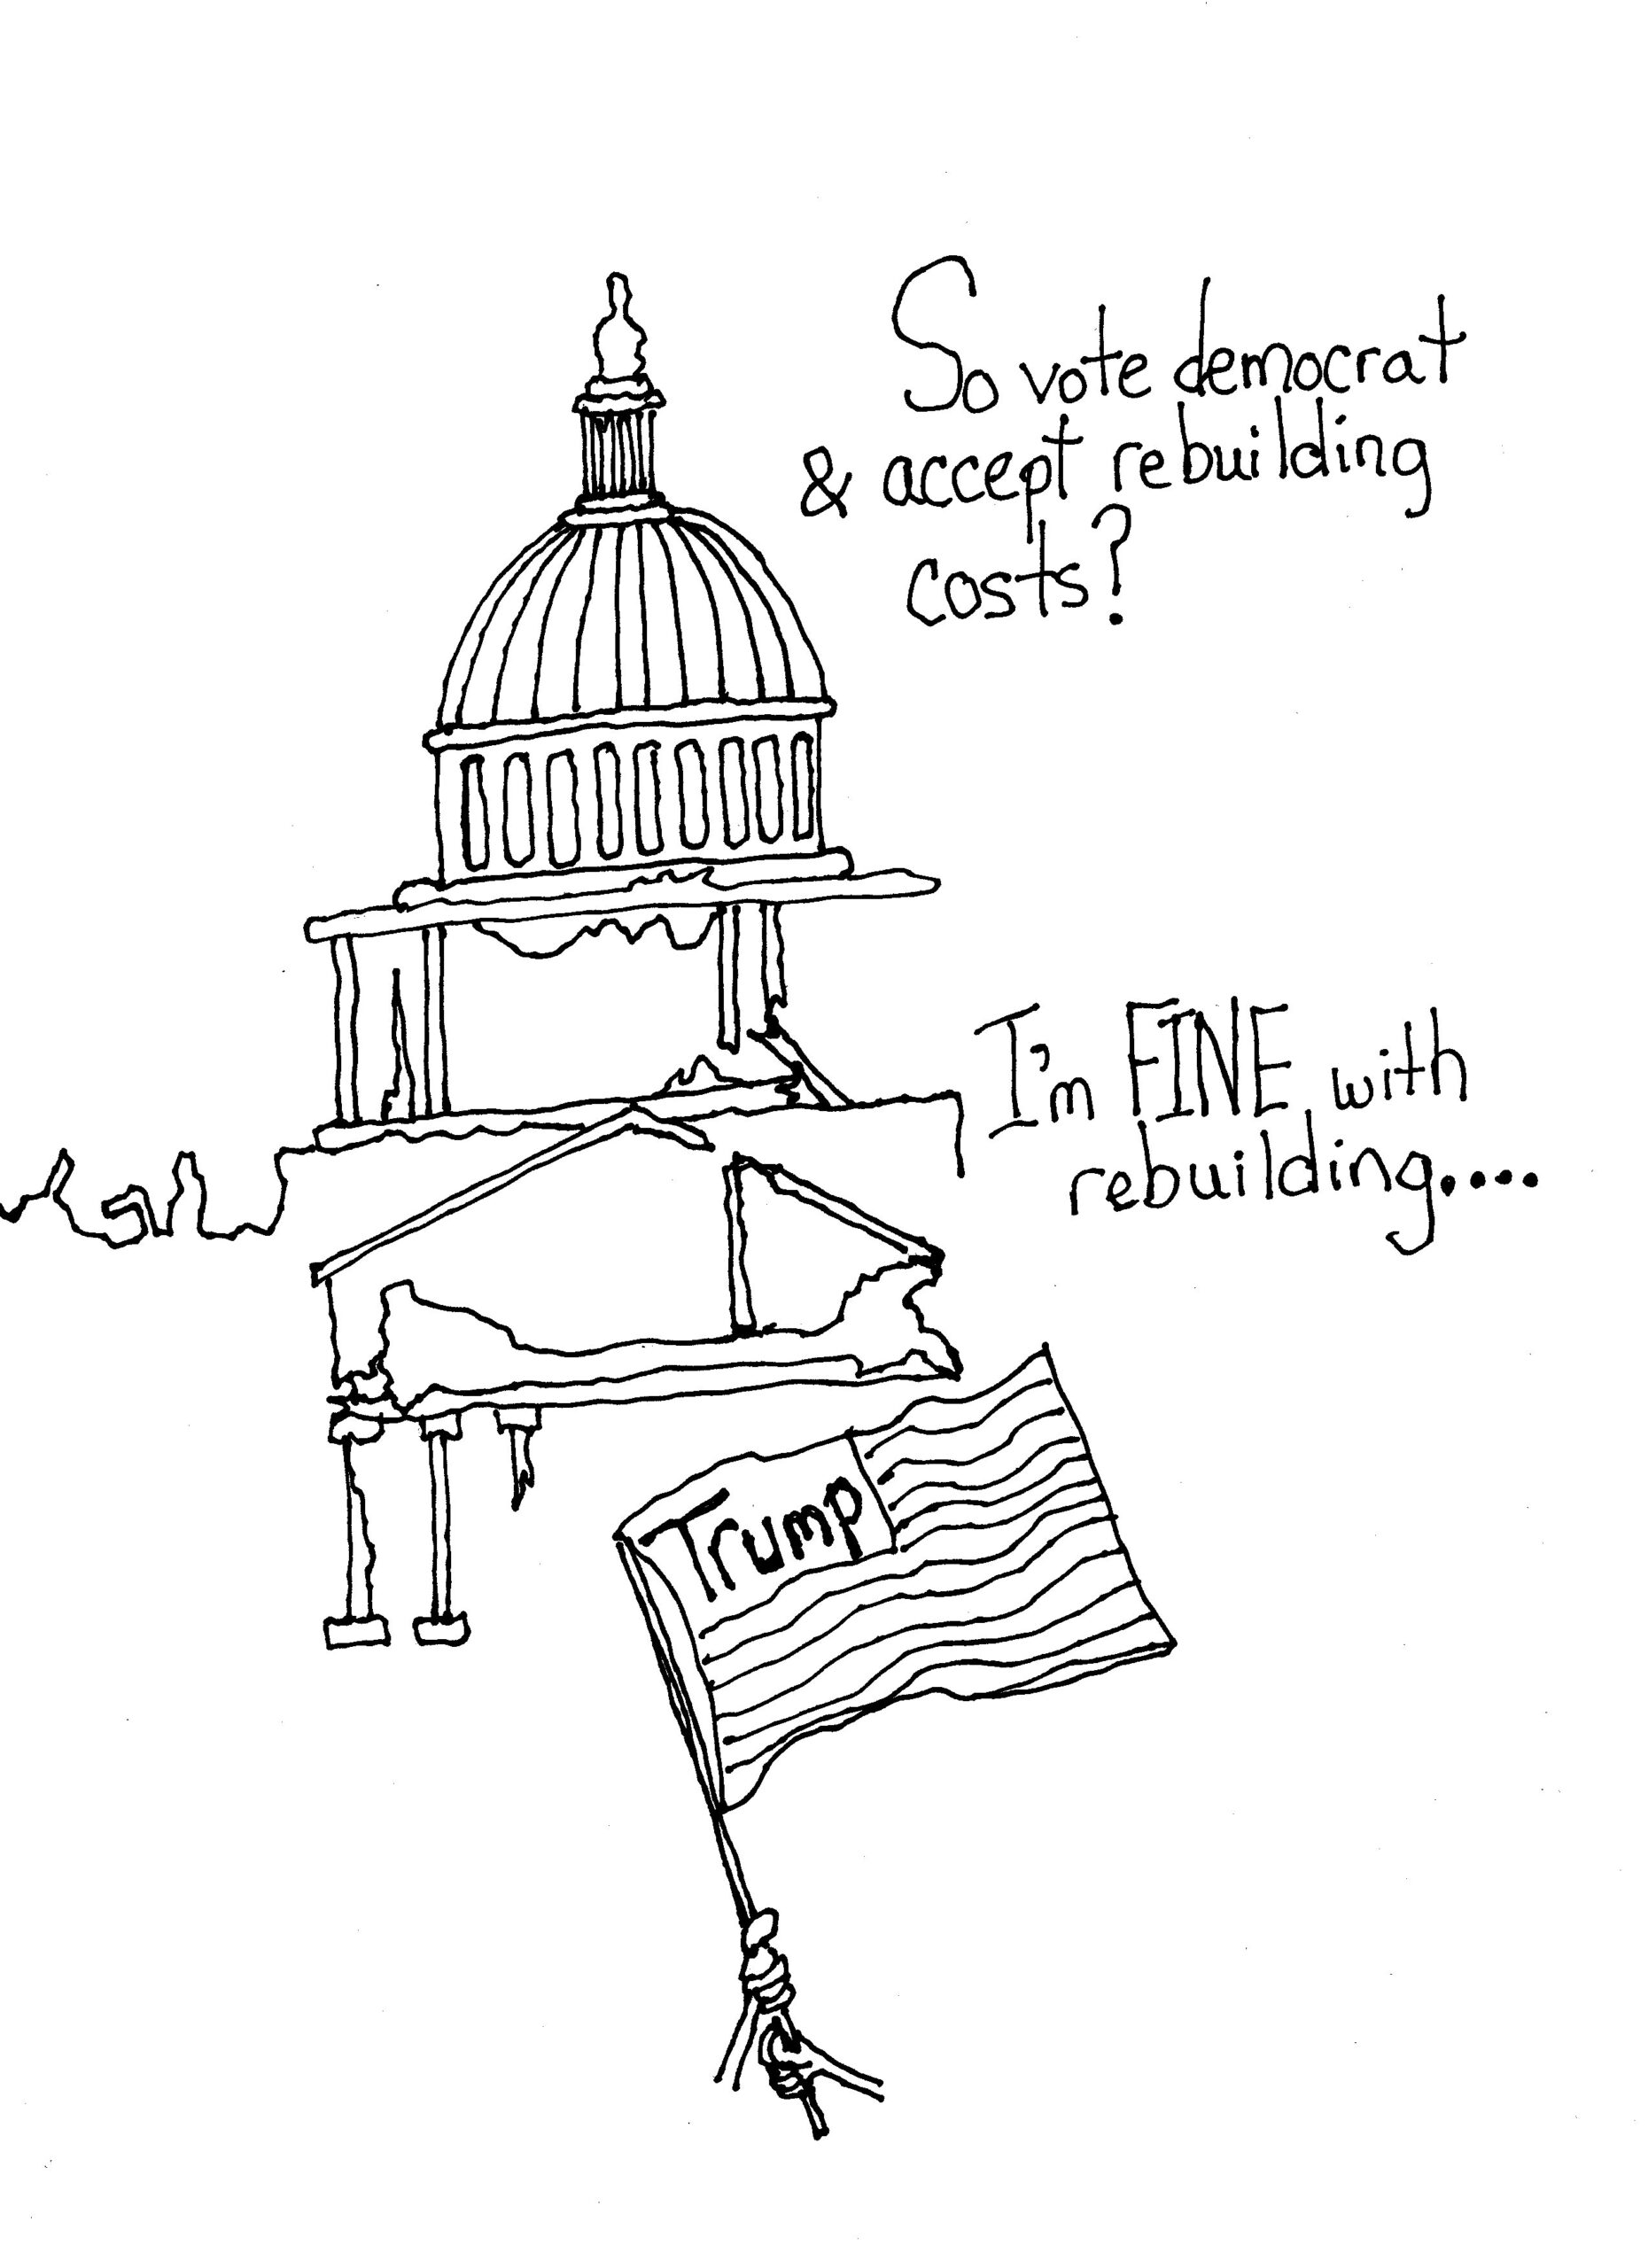 So vote democrat
& accept rebuilding
costs?
I'm FINE with
rebuilding....
Trump